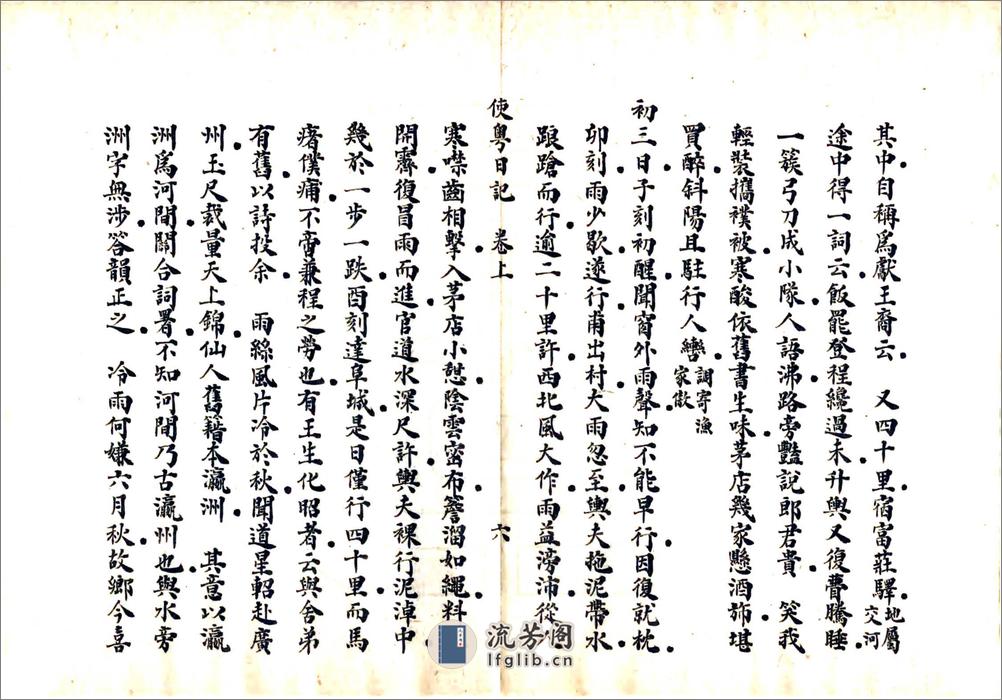 其中自稱爲獻王裔云　又四十里宿富莊驛地屬交河
途中得一詞云飯罷登程纔過未升輿又復瞢騰睡
一簇弓刀成小隊人語沸路旁豔説郎君貴　笑我
輕裝攜襆被寒酸依舊書生味茅店幾家懸酒斾堪
買醉斜陽且駐行人轡調寄漁家傲
初三日子刻初醒聞窗外雨聲知不能早行因復就枕
卯刻雨少歇遂行甫出村大雨忽至輿夫拖泥帶水
踉蹌而行逾二十里許西北風大作雨益滂沛從
使粵日記　卷上　六
寒噤齒相擊入茅店小憩陰雲密布簷溜如繩料
開霽復冒雨而進官道水深尺許輿夫裸行泥淖中
幾於一步一跌酉刻達阜城是日僅行四十里而馬
瘏僕痡不啻兼程之勞也有王生化昭者云與舍弟
有舊以詩投余　雨絲風片冷於秋聞道星軺赴廣
州玉尺載量天上錦仙人舊籍本瀛洲　其意以瀛
洲爲河間關合詞署不知河間乃古瀛州也與水旁
洲字無涉答韻正之　冷雨何嫌六月秋故鄉今喜
流芳阁
lfglib.cn